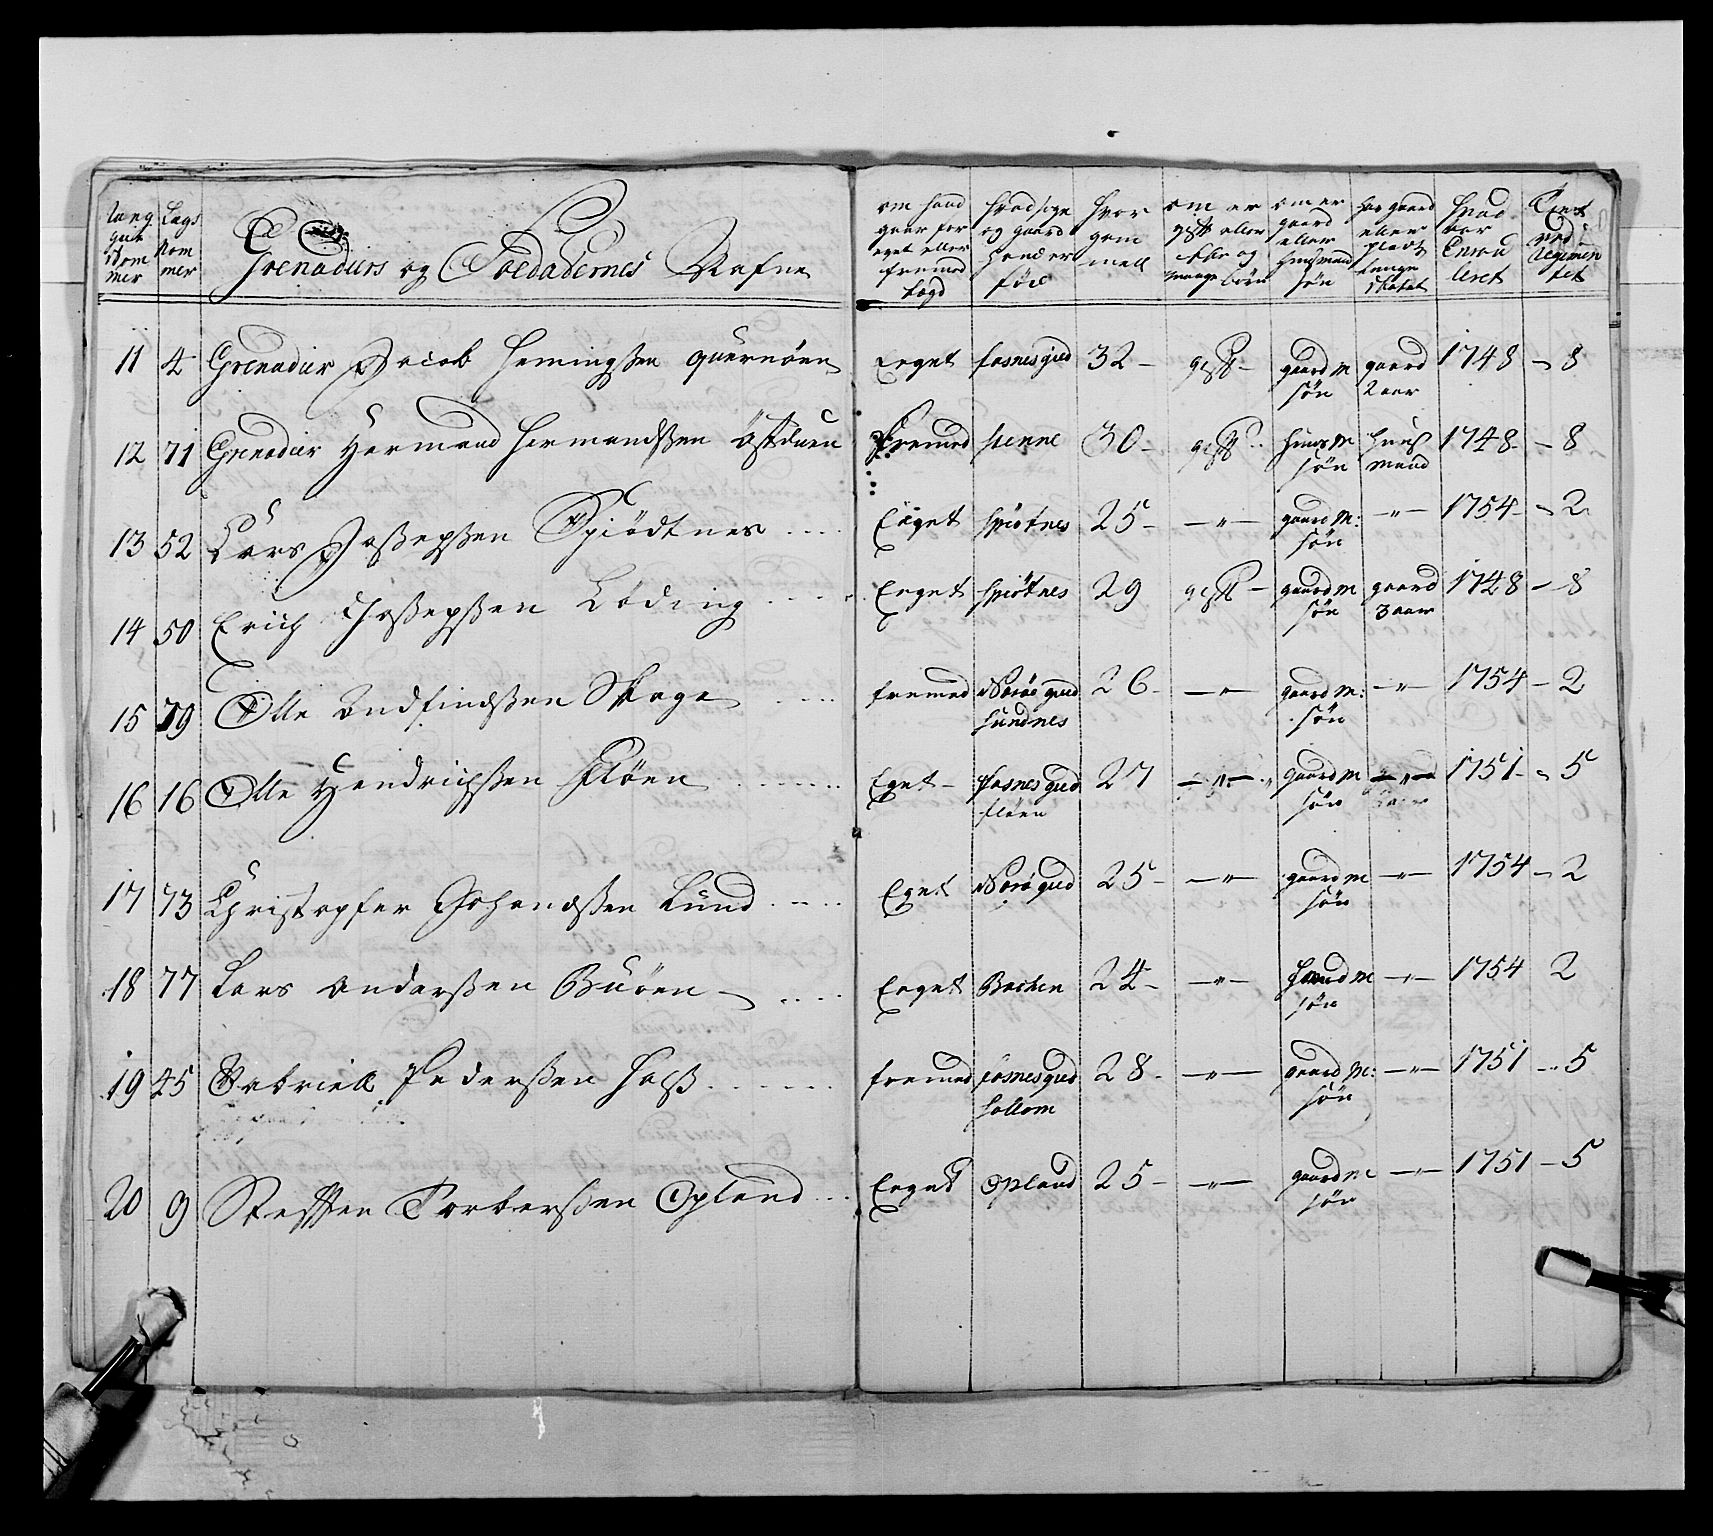 Lang gul Nom mer | Lægs Nom mer | Grenadiers og Soldaternes Nafne | om hand gaar for eget eller fremed Lægd | hvad sogn og gaard hand er fød | hvor gam mell | om er gift eller ekke og mange børn | om er gaard eller huusmand søn | har gaard eller plads længe i støtet | hvad aar Enroul leret | Tient ved Regimen tet
11 4 Grenadier Jacob Hemingsen quernöen Eeget fosnes giel 32 - gift - gaard M søn gaard 2 aar 1748 - 8
12 71 Grenadier Hermand Hermandssen Östduen Fremed henne 30 - gift huus M søn huus mand 1748 - 8
13 52 Lars Joßepßen Spiödtnes Eiget Spiötnes 25 - -"- gaard M: søn -"- 1754 - 2
14 50 Erich Joßepßen Löding Eeget Spiötnes 29 gift - gaard M søn gaard 3 aar 1748 - 8
15 79 Olle Andfindßen Skage fremed Nöröe gield Sundnes 26 - -"- gaard M: søn -"- 1754 - 2
16 16 Olle Hendrichßen Flöen Eget - fosnes gield flöen 27 -"- gaard M søn -"- 1751 - 5
17 73 Christopfer Johandßen Lund Eget Nörö gield 25 - -"- gaard M søn -"- 1754 - 2
18 77 Lars Anderßen Buöen Eeget 24 - -"- M søn -"- 1754 2
19 45 Gabriell Pederßen Halß fremed fosnes gield Sollom 28 - -"- gaard M: søn -"- 1751 - 5
20 9 Steffen Torberßen Opland Eeget Opland 25 - -"- gaard M søn -"- 1751 - 5